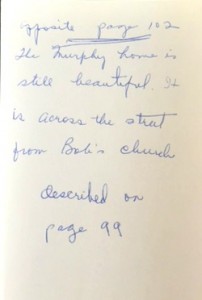 opposite page 102
The Murphy home is
still beautiful. It
is across the street
from Bob's church
described on
page 99